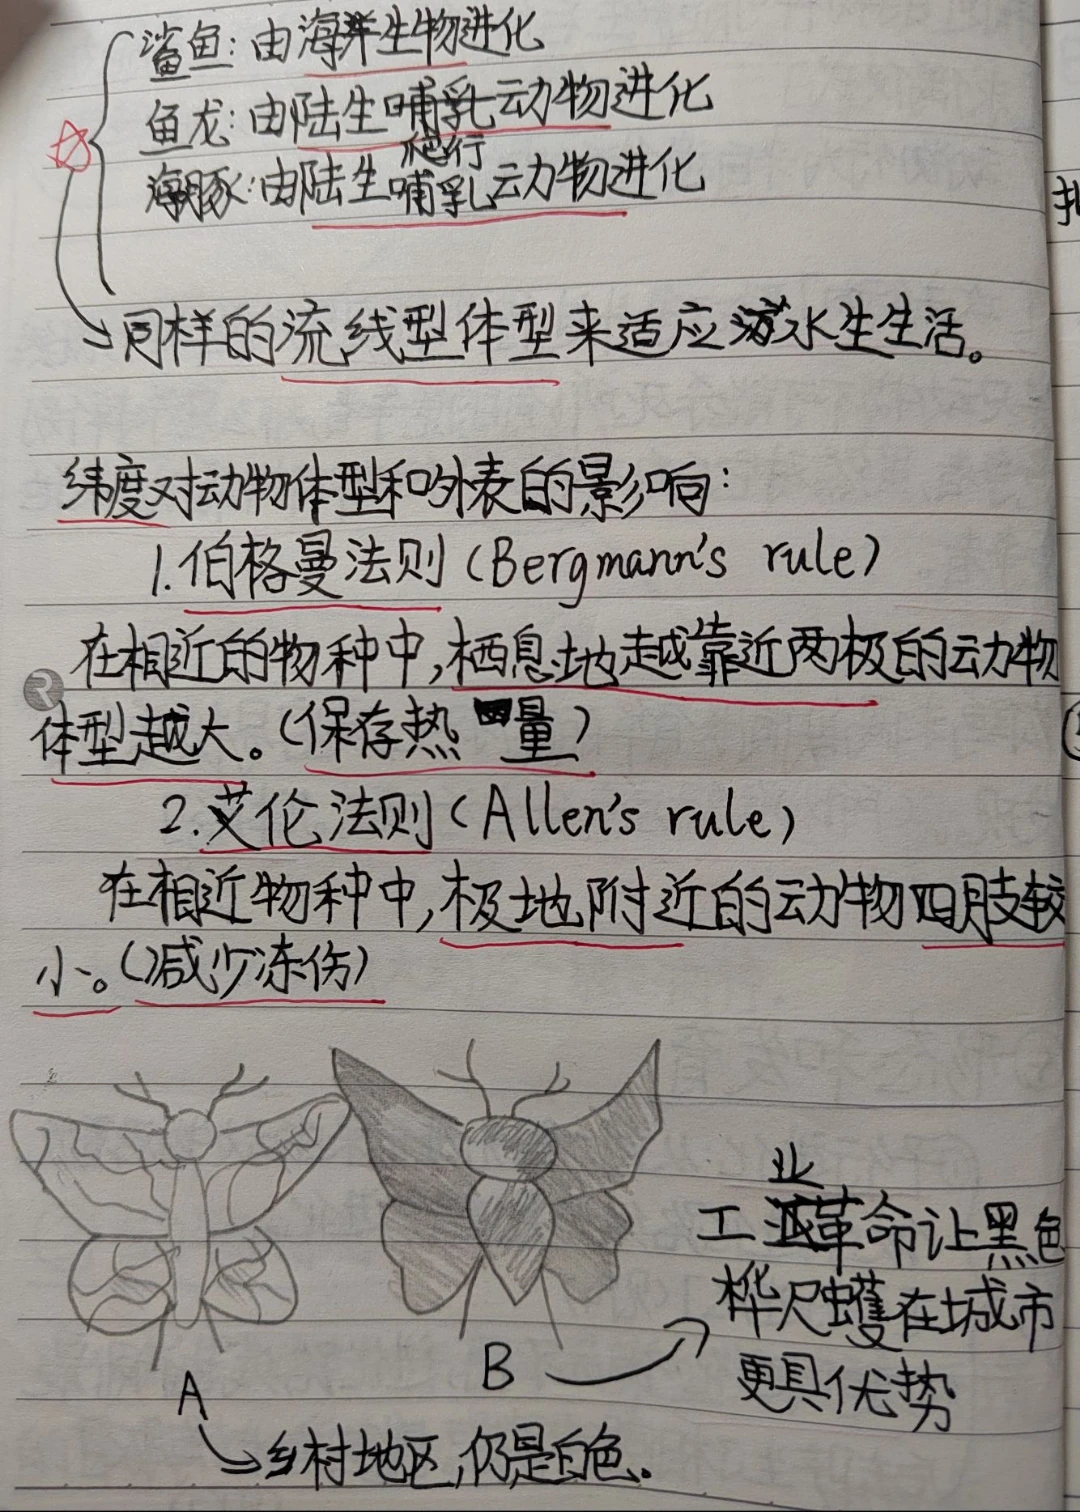 鲨鱼:由海洋生物进化
鱼龙:由陆生哺乳动物进化
爬行
海豚:由陆生哺乳动物进化
同样的流线型体型来适应游水生生活。
纬度对动物体型和外表的影响:
1.伯格曼法则(Bergmann's rule)
在相近的物种中,栖息地越靠近两极的动物
体型越大。(保存热量)
2.艾伦法则(Allen's rule)
在相近物种中,极地附近的动物四肢较
小。(减少冻伤)
业
工革命让黑色
桦尺蠖在城市
更具优势
A
B
乡村地区,仍是白色.